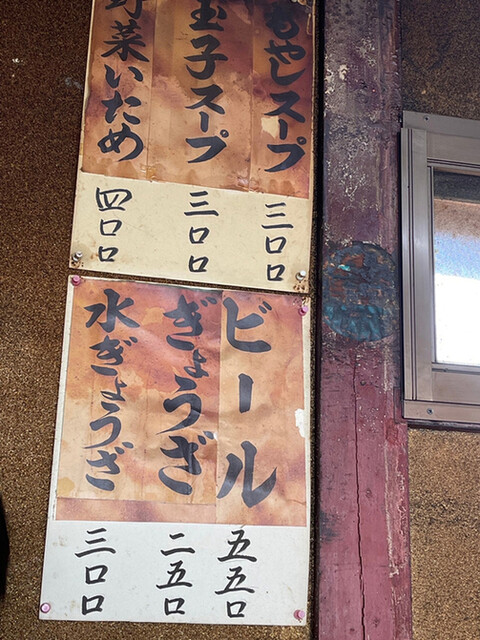 もやしスープ
三〇〇
玉子スープ
三〇〇
野菜いため
四〇〇
ビール
五五〇
ぎょうざ
二五〇
水ぎょうざ
三〇〇